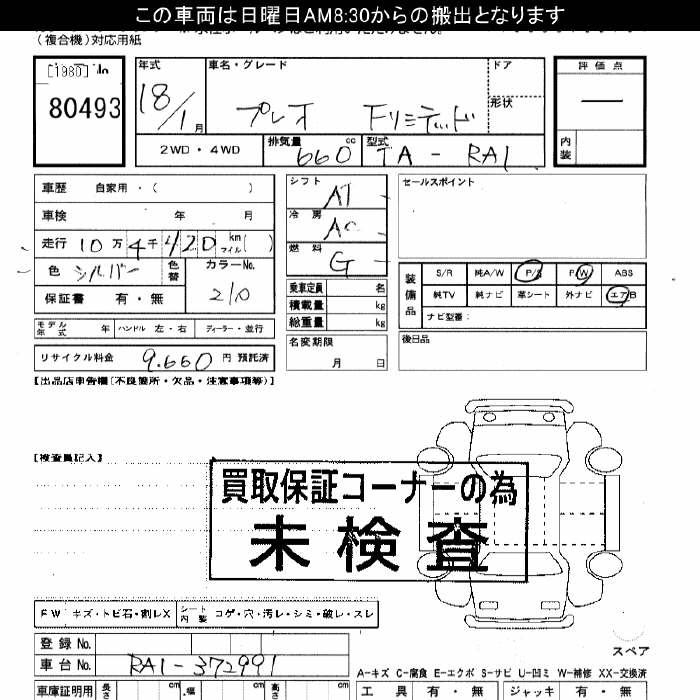 この車両は日曜日AM8:30からの搬出となります
(複合機)対応用紙
[1980] No
80493
年式 18/1月
車名・グレード プレオ Fリミテッド
ドア
形状
評価点 —
内装
2WD・4WD
排気量 660 cc
型式 TA-RA1
車歴 自家用・(
車検 年 月
走行 10万4千420 km マイル ( )
色 シルバー 色替 カラーNo. 210
保証書 有・無
シフト AT
冷房 AC
燃料 G
乗車定員 名
積載量 kg
総重量 kg
セールスポイント
装備品
S/R 純A/W P/S P/W ABS
純TV 純ナビ 革シート 外ナビ エアB
ナビ型番:
モデル年式 年 ハンドル 左・右 ディーラー・並行
名変期限 月 日
後日品
リサイクル料金 9,660 円 預託済
【出品店申告欄[不良箇所・欠品・注意事項等]】
【検査員記入】
買取保証コーナーの為
未検査
FW キズ・トビ石・割レX シート内装 コゲ・穴・汚レ・シミ・破レ・スレ
登録No.
車台No. RA1-372991
スペア
A-キズ C-腐食 E-エクボ S-サビ U-凹ミ W-補修 XX-交換済
車庫証明用 長さ cm 幅 cm 高さ cm
工具 有・無 ジャッキ 有・無